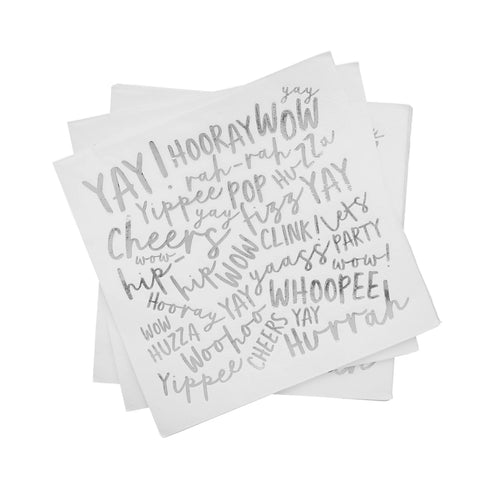 yay
YAY! HOORAY WOW
rah-rah HUZZa
Yippee POP YAY
yay fizz
Cheers CLINK! lets
wow WOW yaass PARTY
hip hip wow!
Hooray YAY WHOOPEE!
WOW Woohoo YAY
HUZZA CHEERS Hurrah
Yippee